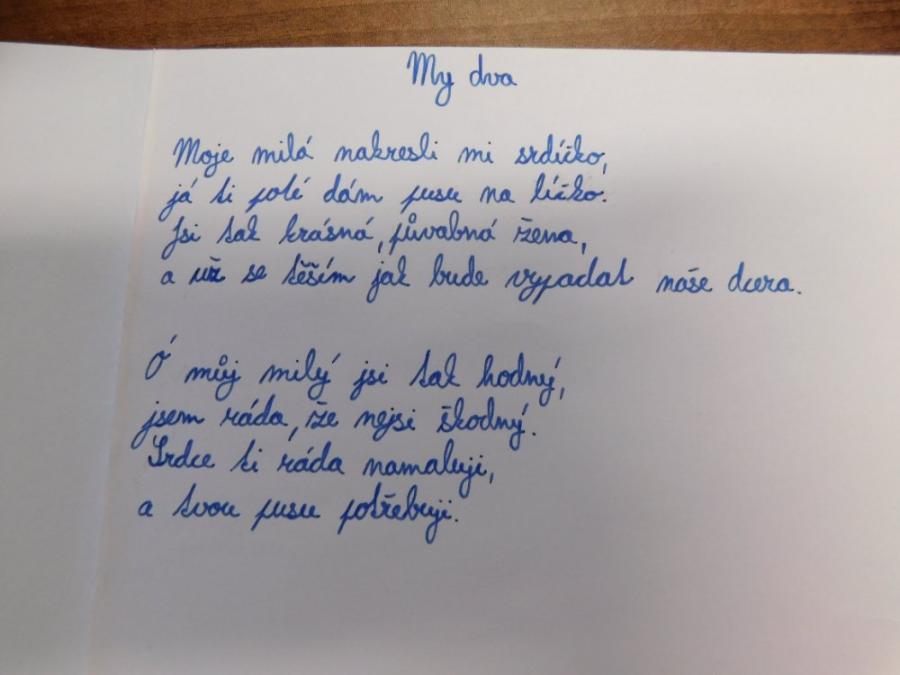 My dva
Moje milá nakresli mi srdíčko,
já ti poté dám pusu na líčko.
Jsi tak krásná, půvabná žena,
a už se těším jak bude vypadat naše dcera.
Ó můj milý jsi tak hodný,
jsem ráda, že nejsi škodný.
Srdce ti ráda namaluji,
a tvou pusu potřebuji.